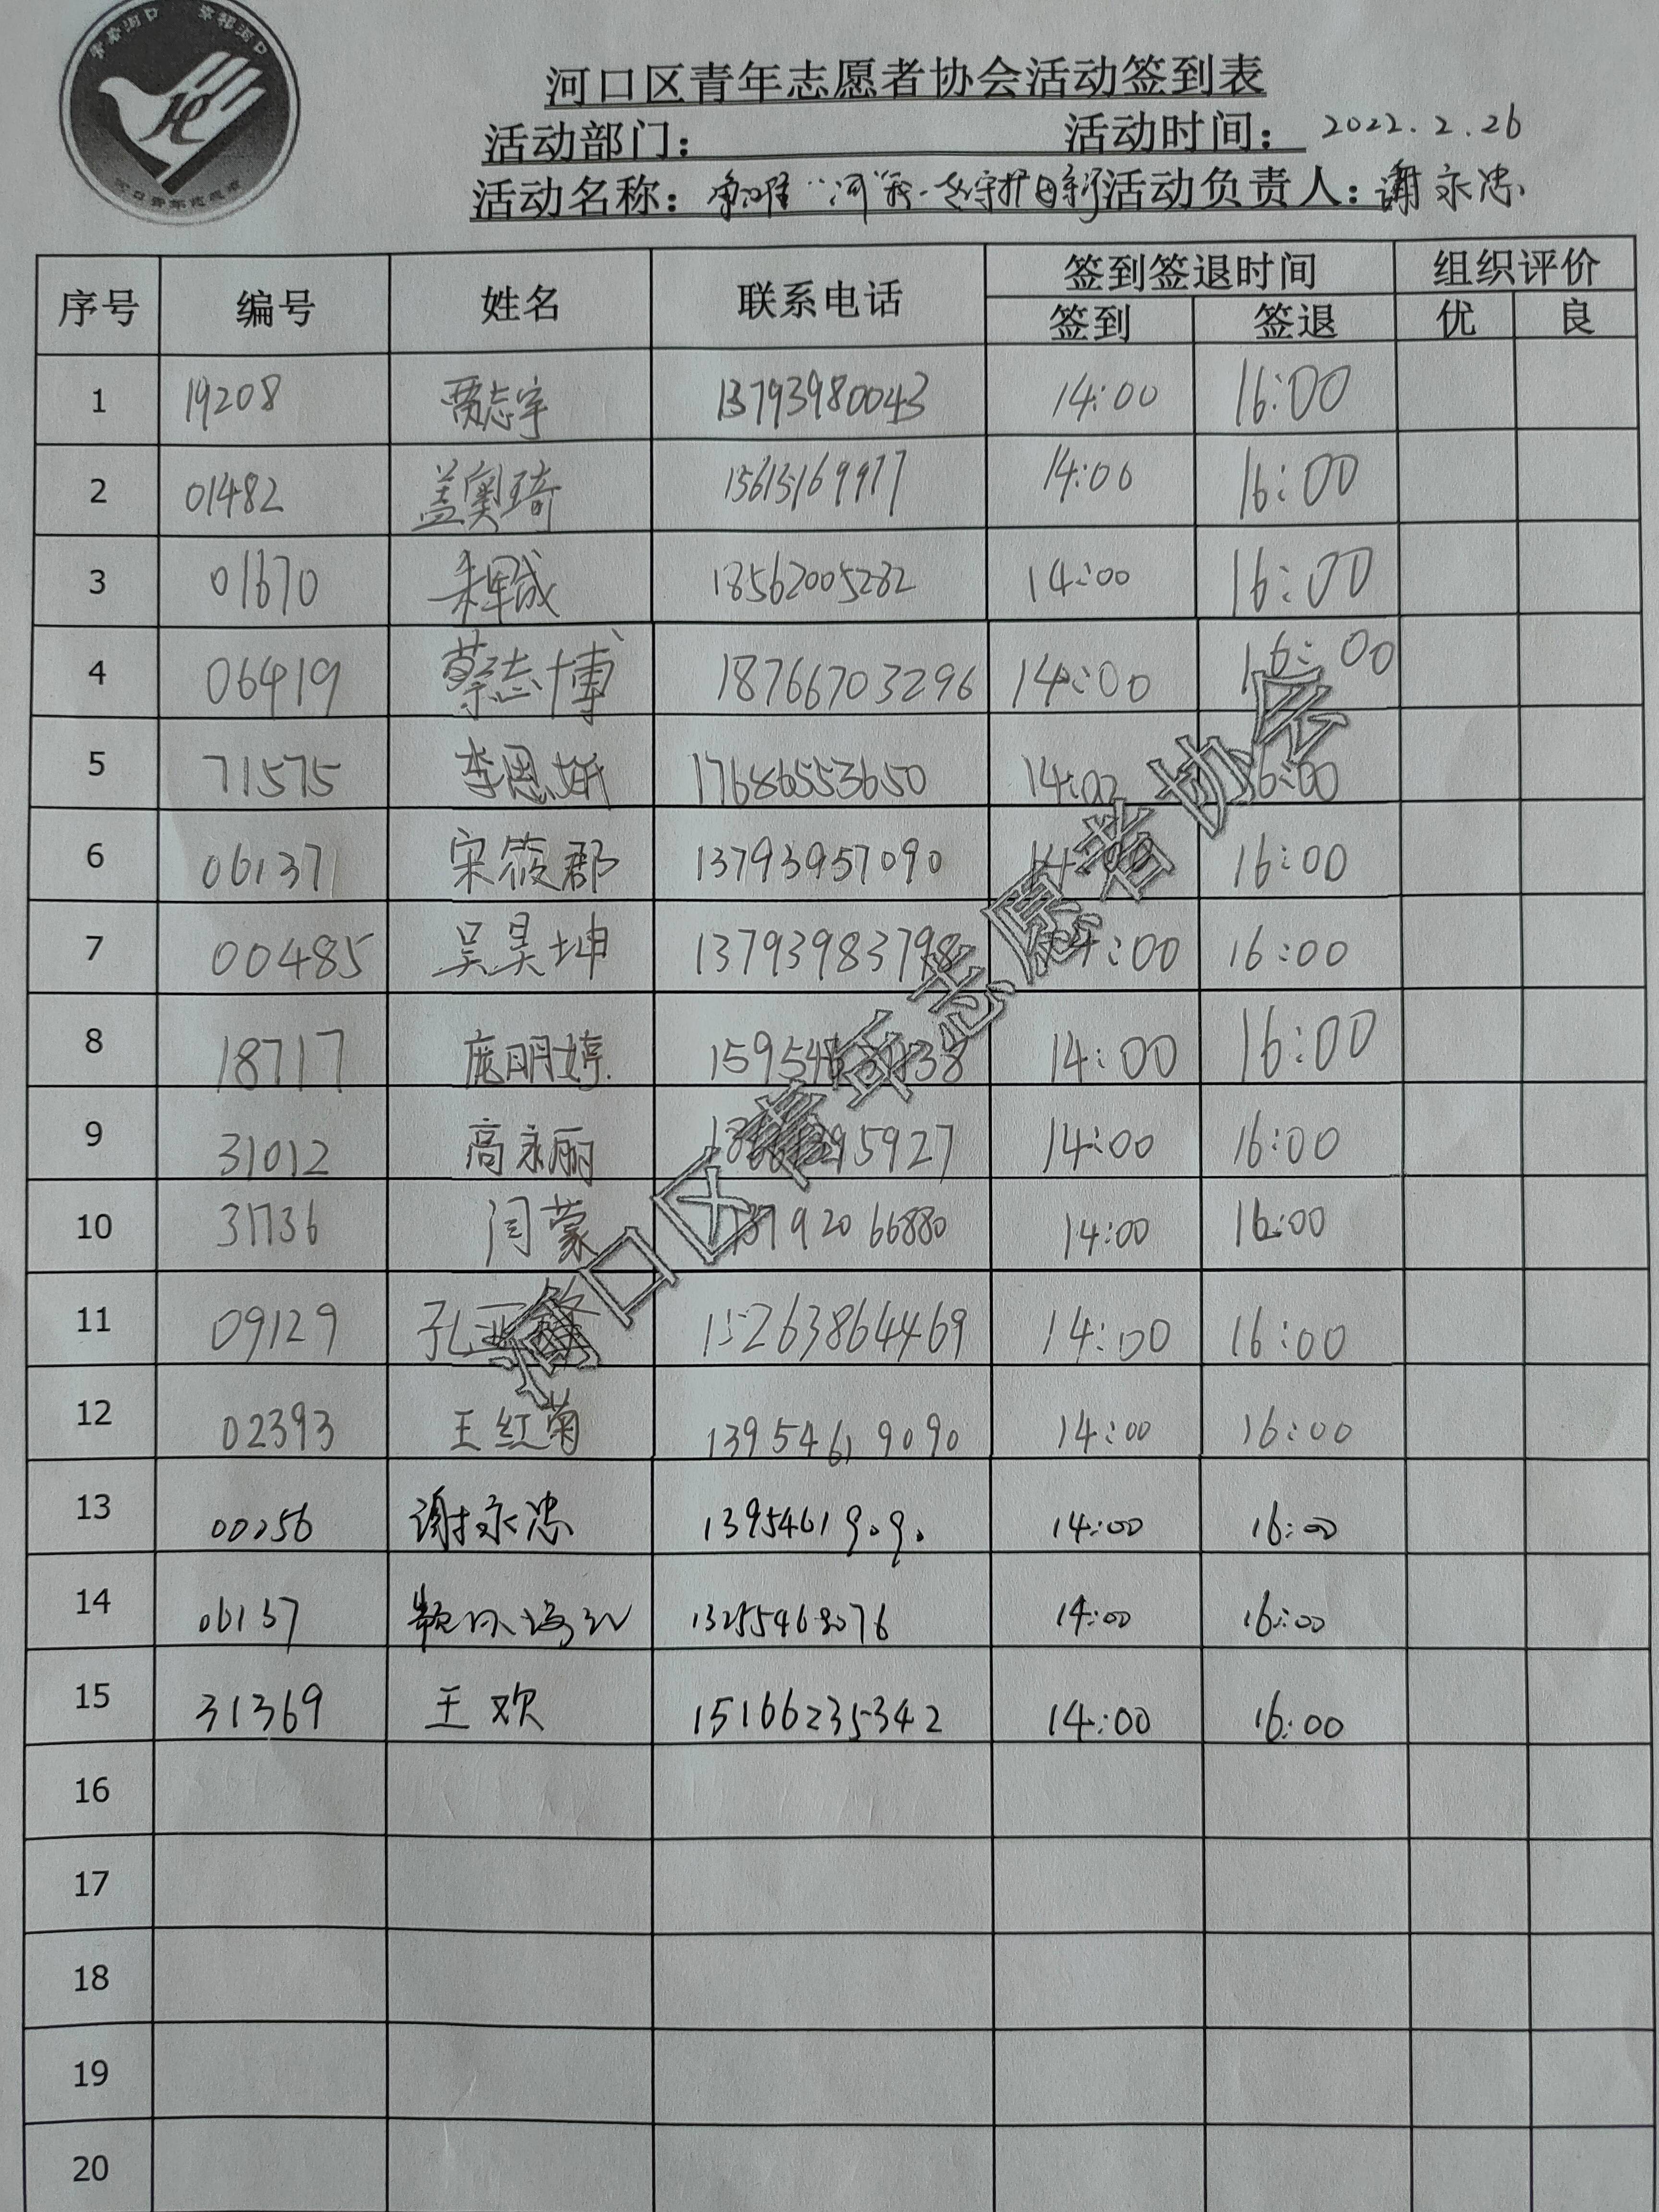 河口区青年志愿者协会活动签到表
活动部门： 活动时间： 2022.2.26
活动名称： 活动负责人：谢永忠
序号 编号 姓名 联系电话 签到签退时间 组织评价
签到 签退 优 良
1 19208 贾志宇 13793980043 14:00 16:00
2 01482 盖奥琦 15615169977 14:00 16:00
3 01670 18562005282 14:00 16:00
4 06419 蔡志博 18766703296 14:00 16:00
5 71575 李恩 17686553650 14:00 16:00
6 061371 宋筱郡 13793957090 14:00 16:00
7 00485 吴昊坤 13793983798 14:00 16:00
8 18717 庞明婷 14:00 16:00
9 31012 高永丽 14:00 16:00
10 31736 闫蒙 18792066880 14:00 16:00
11 09129 孔 15263864469 14:00 16:00
12 02393 王红菊 13954619090 14:00 16:00
13 00256 谢永忠 13954619090 14:00 16:00
14 06137 13255468076 14:00 16:00
15 31369 王欢 15166235342 14:00 16:00
16
17
18
19
20
河口区青年志愿者协会